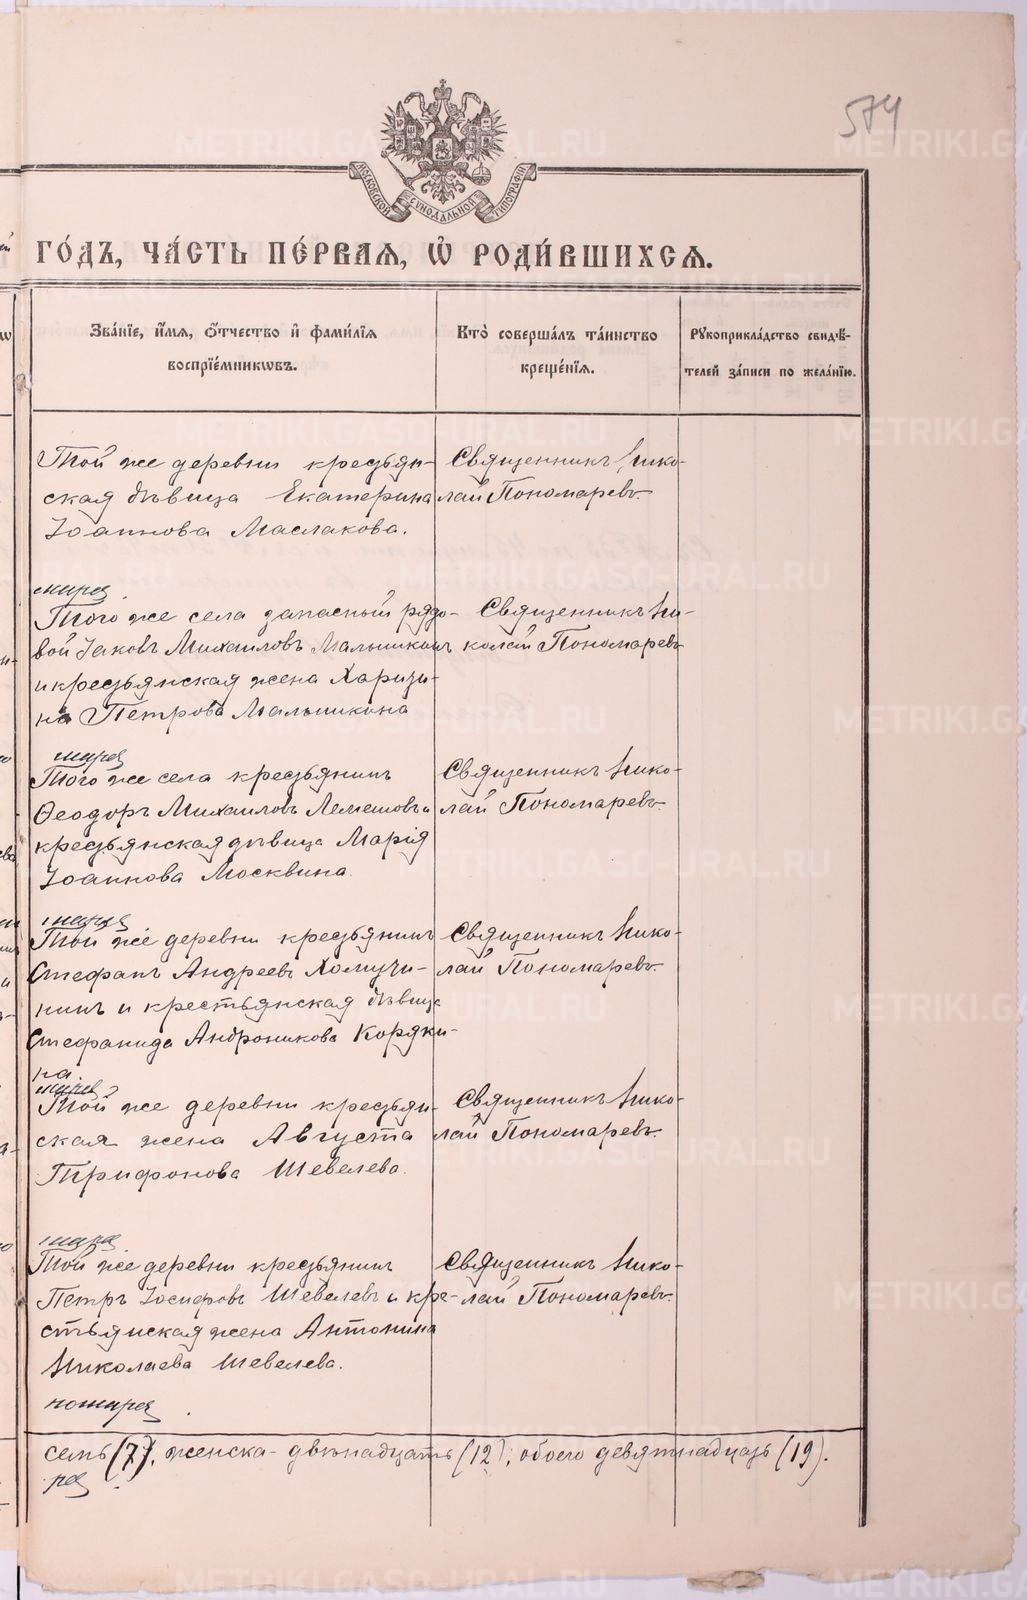 574
МОСКОВСКОЙ СѴНОДАЛЬНОЙ ТИПОГРАФІИ
ГО́ДЪ, ЧА́СТЬ ПЕ́РВАѦ, Ѽ РОДИ́ВШИХСѦ.
Зва́нїе, и́мѧ, ѻ҆́тчество и҆ фами́лїѧ
воспрїе́мникѡвъ.
Кто̀ соверша́лъ та́инство
креще́нїѧ.
Рꙋкоприкла́дство свидѣ́-
телей за́писи по жела́нїю.
Той же деревни крестьян-
ская дѣвица Екатерина
Іоаннова Маслакова.
Священникъ Нико-
лай Пономаревъ.
Того же села запасный рядо-
вой Іаковъ Михаиловъ Мальшкинъ
и крестьянская жена Харити-
на Петрова Мальшкина
Священникъ Ни-
колай Пономаревъ
Того же села крестьянинъ
Ѳеодоръ Михаиловъ Лемешовъ и
крестьянская дѣвица Марія
Іоаннова Москвина
Священникъ Нико-
лай Пономаревъ.
Той же деревни крестьянинъ
Стефанъ Андреевъ Хомути-
нинъ и крестьянская дѣвица
Стефанида Андроникова Коряки-
на
Священникъ Нико-
лай Пономаревъ.
Той же деревни крестьян-
ская жена Августа
Трифонова Шевелева.
Священникъ Нико-
лай Пономаревъ.
Той же деревни крестьянинъ
Петръ Іосифовъ Шевелевъ и кре-
стьянская жена Антонина
Николаева Шевелева.
Священникъ Нико-
лай Пономаревъ.
семь (7), женска - двѣнадцать (12), обоего девятнадцать (19).
METRIKI.GASO-URAL.RU